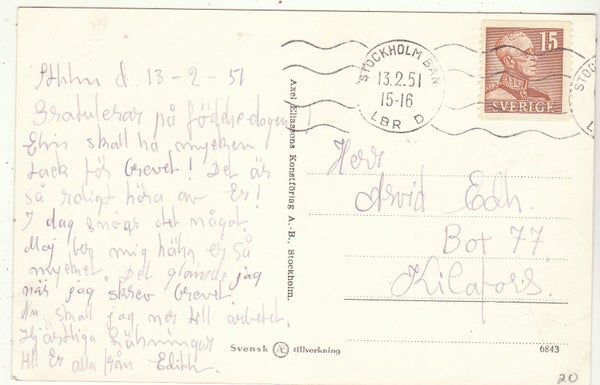 Sthlm d. 13-2-51
Gratulerar på födelsedagen!
Elin skall ha mycken
tack för brevet! Det är
så roligt höra av Er!
I dag snögar det något.
Maj ber mig hälsa er så
mycket. Det glömde jag
när jag skrev brevet.
Nu skall jag ner till arbetet.
Hjärtliga Hälsningar
till Er alla från Edith.
Axel Eliassons Konstförlag A.-B., Stockholm.
Svensk Æ tillverkning
STOCKHOLM BAN
13.2.51
15-16
LBR D
15
SVERIGE
STOC
L
Herr
Arvid Edh.
Box 77
Kilafors.
6843
20